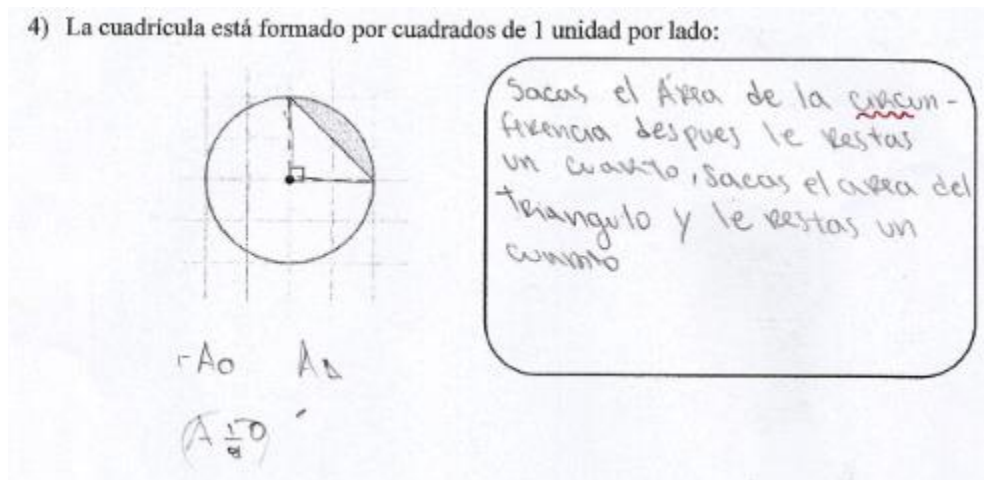 4) La cuadrícula está formado por cuadrados de 1 unidad por lado:
Sacas el Área de la circun-
ferencia despues le restas
un cuarto, Sacas el area del
triangulo y le restas un
cuarto